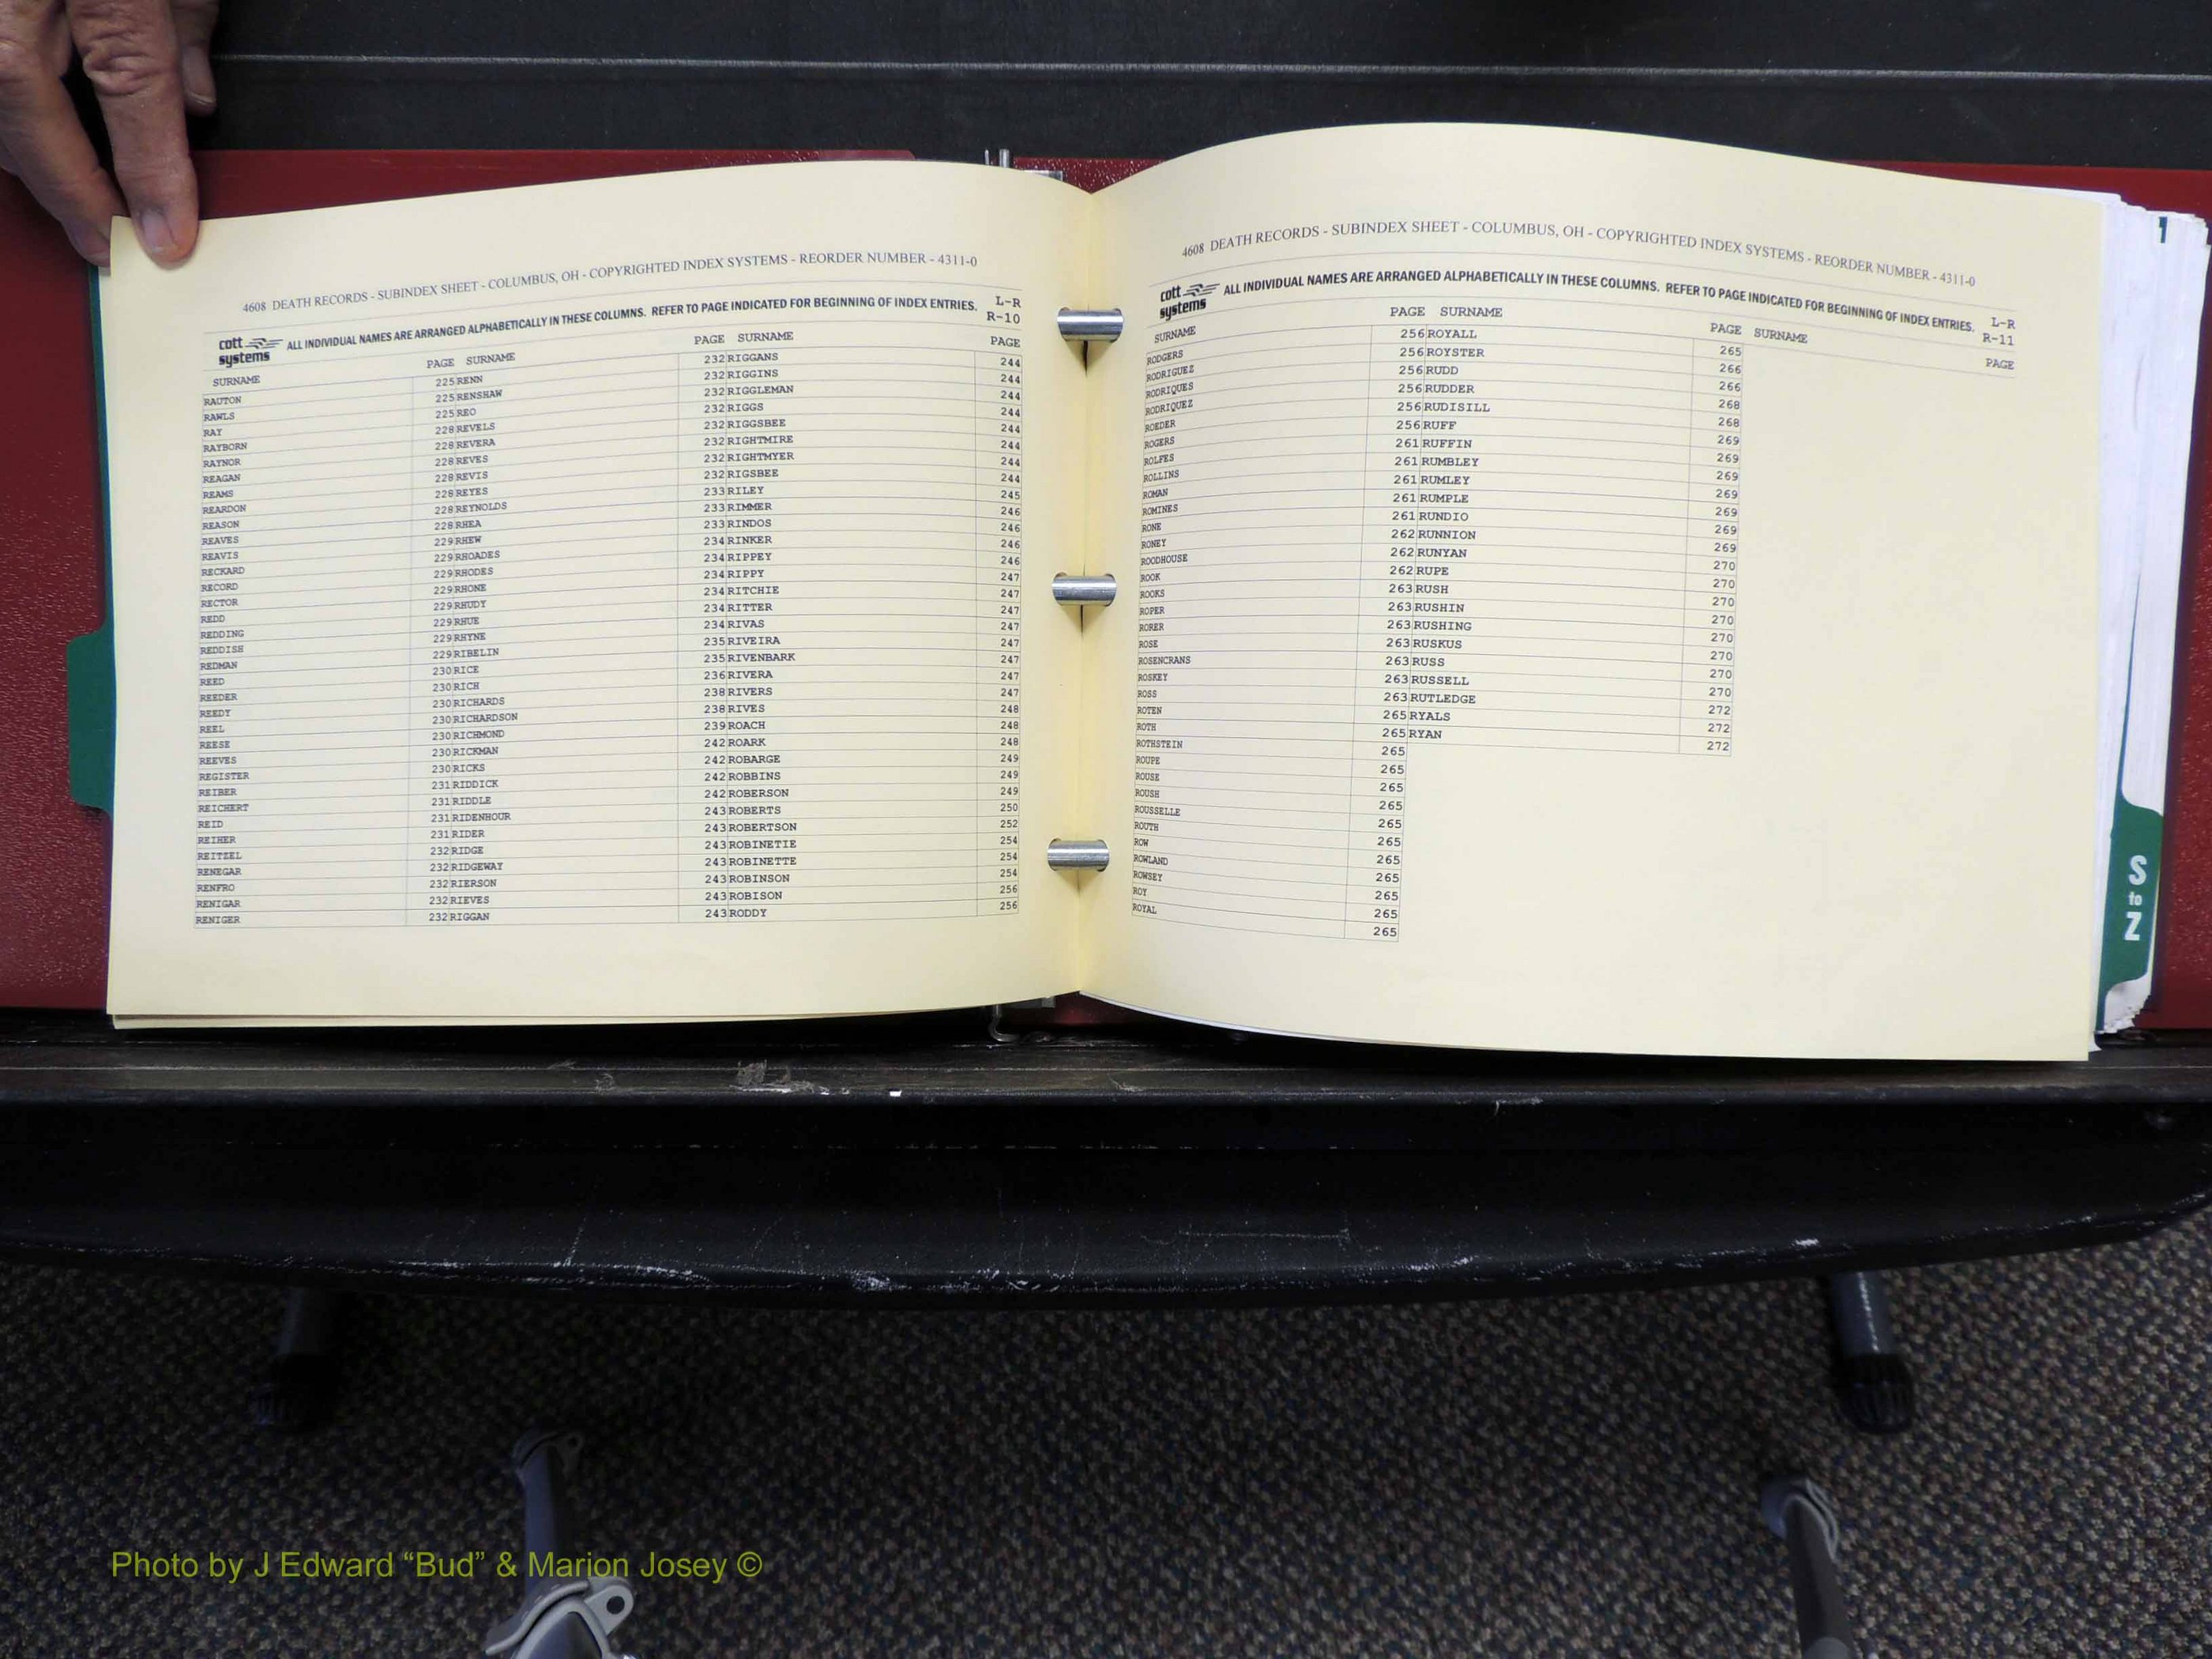 4608 DEATH RECORDS - SUBINDEX SHEET - COLUMBUS, OH - COPYRIGHTED INDEX SYSTEMS - REORDER NUMBER - 4311-0
cott systems ALL INDIVIDUAL NAMES ARE ARRANGED ALPHABETICALLY IN THESE COLUMNS. REFER TO PAGE INDICATED FOR BEGINNING OF INDEX ENTRIES. L-R
R-10
SURNAME PAGE SURNAME PAGE SURNAME PAGE
RAUTON 225 RENN 232 RIGGANS 244
RAWLS 225 RENSHAW 232 RIGGINS 244
RAY 225 REO 232 RIGGLEMAN 244
RAYBORN 228 REVELS 232 RIGGS 244
RAYNOR 228 REVERA 232 RIGGSBEE 244
REAGAN 228 REVES 232 RIGHTMIRE 244
REAMS 228 REVIS 232 RIGHTMYER 244
REARDON 228 REYES 232 RIGSBEE 244
REASON 228 REYNOLDS 233 RILEY 245
REAVES 228 RHEA 233 RIMMER 246
REAVIS 229 RHEW 233 RINDOS 246
RECKARD 229 RHOADES 234 RINKER 246
RECORD 229 RHODES 234 RIPPEY 246
RECTOR 229 RHONE 234 RIPPY 247
REDD 229 RHUDY 234 RITCHIE 247
REDDING 229 RHUE 234 RITTER 247
REDDISH 229 RHYNE 234 RIVAS 247
REDMAN 229 RIBELIN 235 RIVEIRA 247
REED 230 RICE 235 RIVENBARK 247
REEDER 230 RICH 236 RIVERA 247
REEDY 230 RICHARDS 238 RIVERS 247
REEL 230 RICHARDSON 238 RIVES 248
REESE 230 RICHMOND 239 ROACH 248
REEVES 230 RICKMAN 242 ROARK 248
REGISTER 230 RICKS 242 ROBARGE 249
REIBER 231 RIDDICK 242 ROBBINS 249
REICHERT 231 RIDDLE 242 ROBERSON 249
REID 231 RIDENHOUR 243 ROBERTS 250
REIHER 231 RIDER 243 ROBERTSON 252
REITZEL 232 RIDGE 243 ROBINETIE 254
RENEGAR 232 RIDGEWAY 243 ROBINETTE 254
RENFRO 232 RIERSON 243 ROBINSON 254
RENIGAR 232 RIEVES 243 ROBISON 256
RENIGER 232 RIGGAN 243 RODDY 256
4608 DEATH RECORDS - SUBINDEX SHEET - COLUMBUS, OH - COPYRIGHTED INDEX SYSTEMS - REORDER NUMBER - 4311-0
cott systems ALL INDIVIDUAL NAMES ARE ARRANGED ALPHABETICALLY IN THESE COLUMNS. REFER TO PAGE INDICATED FOR BEGINNING OF INDEX ENTRIES. L-R
R-11
SURNAME PAGE SURNAME PAGE SURNAME PAGE
RODGERS 256 ROYALL 265
RODRIGUEZ 256 ROYSTER 266
RODRIQUES 256 RUDD 266
RODRIQUEZ 256 RUDDER 268
ROEDER 256 RUDISILL 268
ROGERS 256 RUFF 269
ROLFES 261 RUFFIN 269
ROLLINS 261 RUMBLEY 269
ROMAN 261 RUMLEY 269
ROMINES 261 RUMPLE 269
RONE 261 RUNDIO 269
RONEY 262 RUNNION 269
ROODHOUSE 262 RUNYAN 270
ROOK 262 RUPE 270
ROOKS 263 RUSH 270
ROPER 263 RUSHIN 270
RORER 263 RUSHING 270
ROSE 263 RUSKUS 270
ROSENCRANS 263 RUSS 270
ROSKEY 263 RUSSELL 270
ROSS 263 RUTLEDGE 272
ROTEN 265 RYALS 272
ROTH 265 RYAN 272
ROTHSTEIN 265
ROUPE 265
ROUSE 265
ROUSH 265
ROUSSELLE 265
ROUTH 265
ROW 265
ROWLAND 265
ROWSEY 265
ROY 265
ROYAL 265
S
to
Z
Photo by J Edward “Bud” & Marion Josey ©